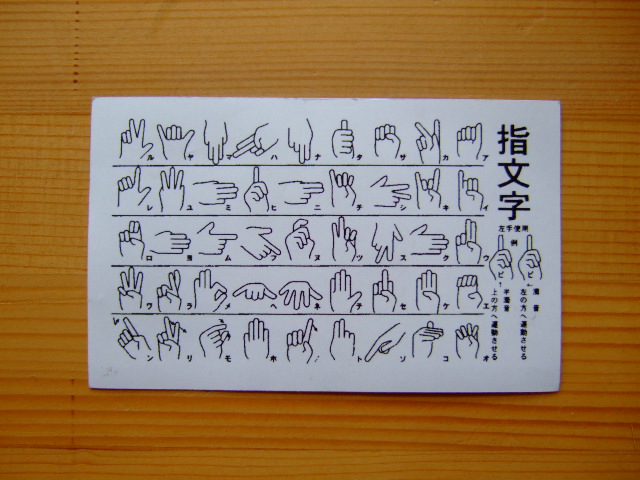 指文字
左手使用
例
ビ
ピ
濁音
左の方へ運動させる
半濁音
上の方へ運動させる
ア イ ウ エ オ
カ キ ク ケ コ
サ シ ス セ ソ
タ チ ツ テ ト
ナ ニ ヌ ネ
ハ ヒ ヘ ホ
ミ ム メ モ
ヤ ユ ヨ ラ リ
ル レ ロ ワ ン